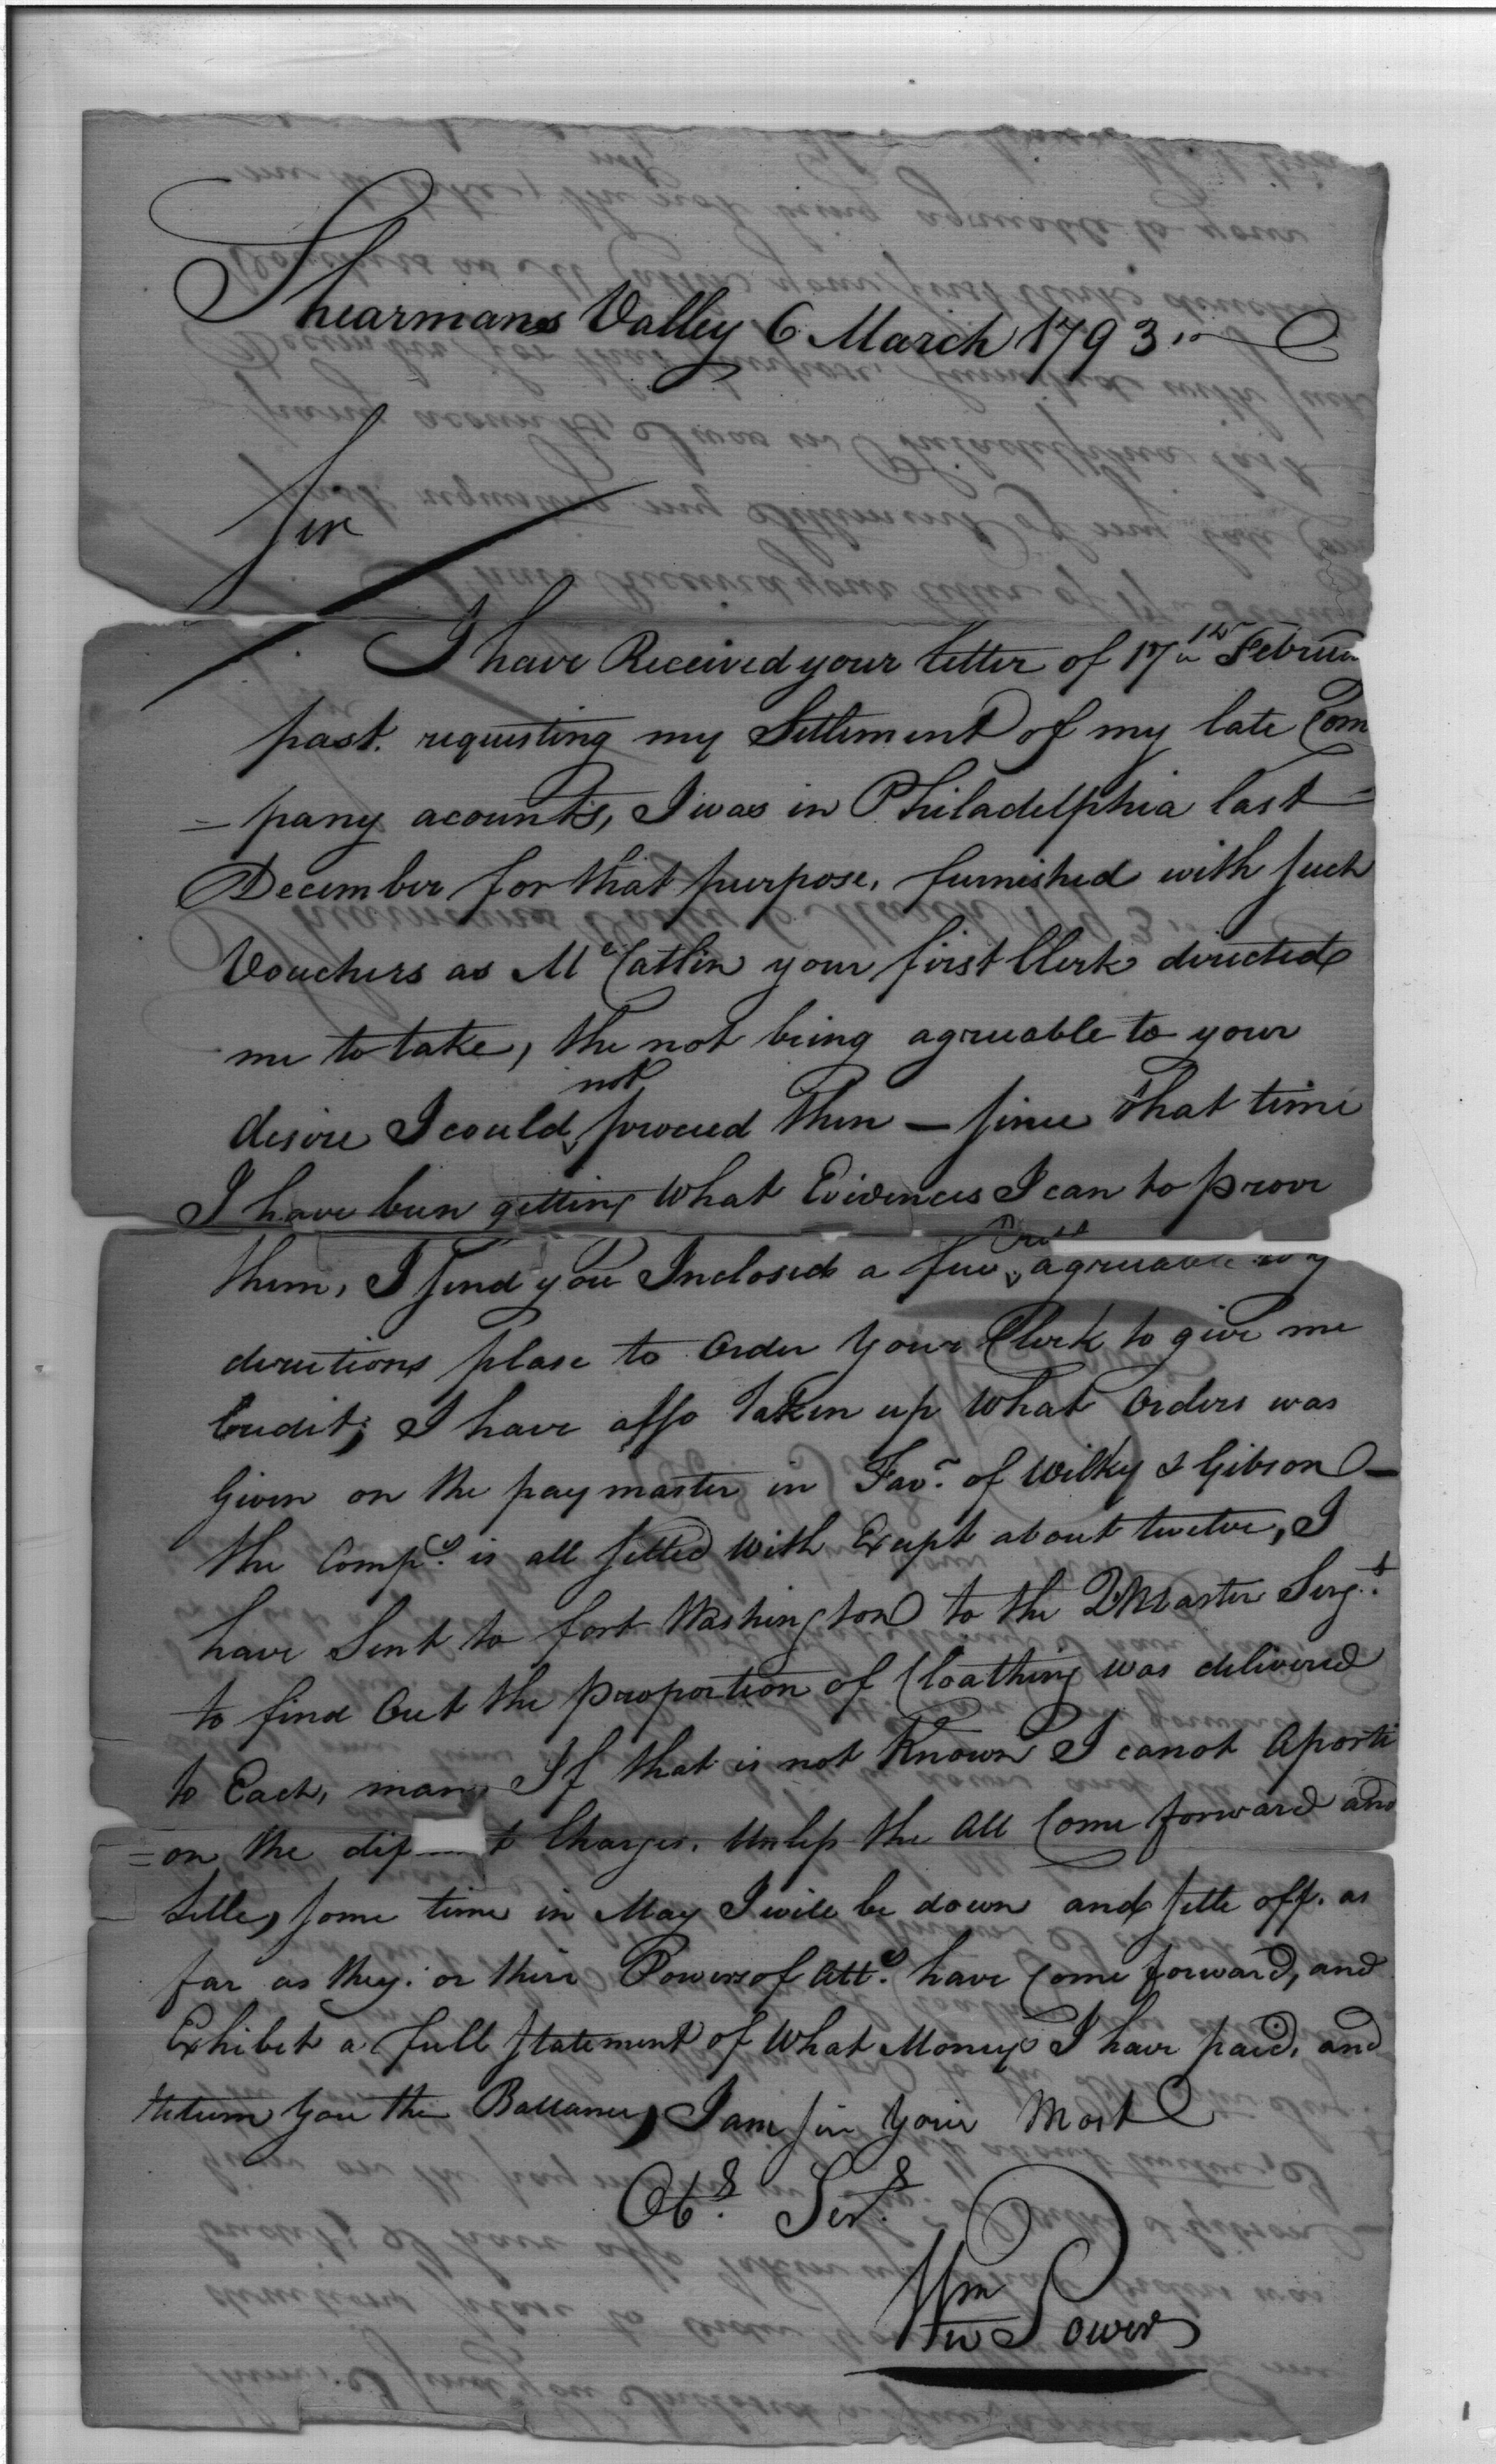 Shearmans Valley 6 March 1793
Sir
I have Received your letter of 17th Februa
past. requesting my Settlement of my late Com
= pany acounts, I was in Philadelphia last
December for that purpose, furnished with such
Vouchers as Mc Catlin your first Clerk directed
me to take, the not being agreeable to your
desire I could not proceed then — since that time
I have been getting What Evidences I can to prove
them, I send you Inclosed a few agreeable to y
directions plase to Order your Clerk to give me
Credit; I have also Taken up What Orders was
Given on the paymaster in Favr. of Wilky & Gibson —
the Compy. is all setled With Exept about twelve, I
have Sent to fort Washington to the QMaster Sergt.
to find Out the proportion of Cloathing was delivered
to Each, man, If that is not Known I canot Aporti
= on the dif t Charges. Unless the All Come forward and
Setle, some time in May I will be down and setle off. as
far as they. or thire Powers of Atty. have Come forward, and
Exhibet a full statement of What Money I have paid, and
return You the Ballance, I am sir Your Most
Ob. Ser.
Wm Power